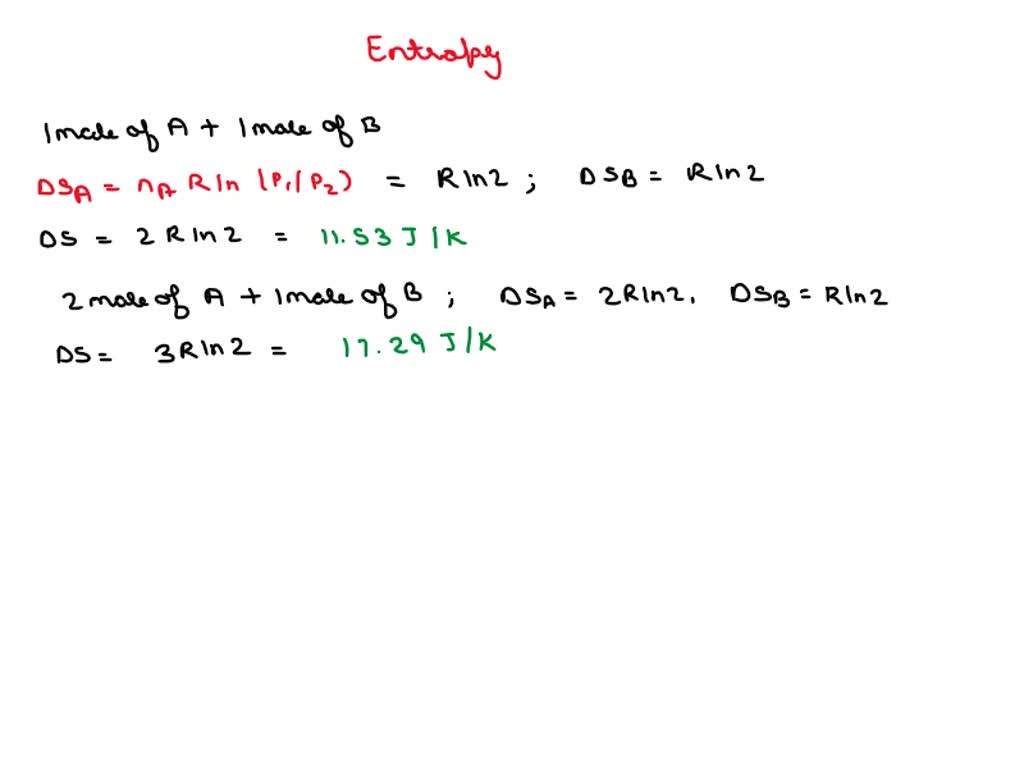 Entropy
1 mole of A + 1 mole of B
DSA = nA R ln (P1/P2) = R ln2 ; DSB = R ln2
DS = 2 R ln2 = 11.53 J/K
2 mole of A + 1 mole of B ; DSA = 2R ln2, DSB = R ln2
DS = 3R ln2 = 17.29 J/K